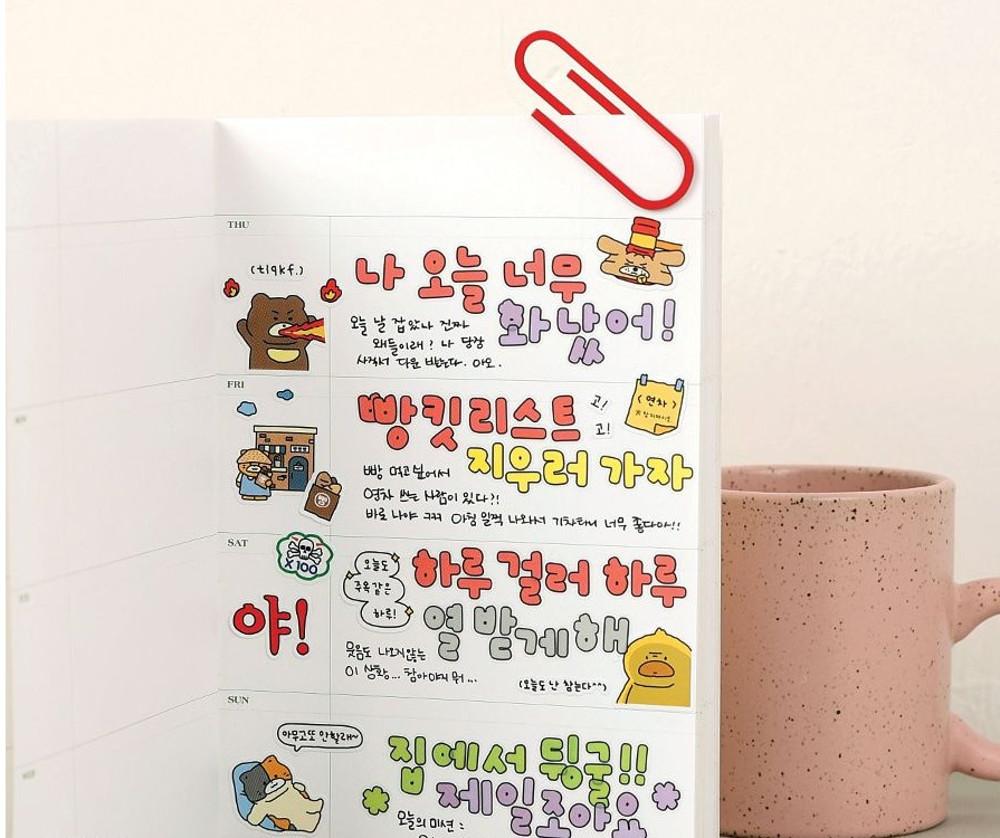 THU
(tlqkf.)
나 오늘 너무
화났어!
오늘 날 잡았나 진짜
왜들이래? 나 당장
다운 받는다. 아오.
FRI
빵킷리스트
고!
고!
(연차)
지우러 가자
빵 먹고 싶어서
연차 쓰는 사람이 있다?!
바로 나야 ㅋㅋ 아침 일찍 나와서 기차타니 너무 좋다아!!
SAT
X100
야!
오늘도
주옥같은
하루!
하루 걸러 하루
열받게해
웃음도 나오지않는
이 상황... 참아야지 뭐...
(오늘도 난 참는다^^)
SUN
아무고또 안할래~
집에서 뒹굴!!
제일조아요
오늘의 미션 :